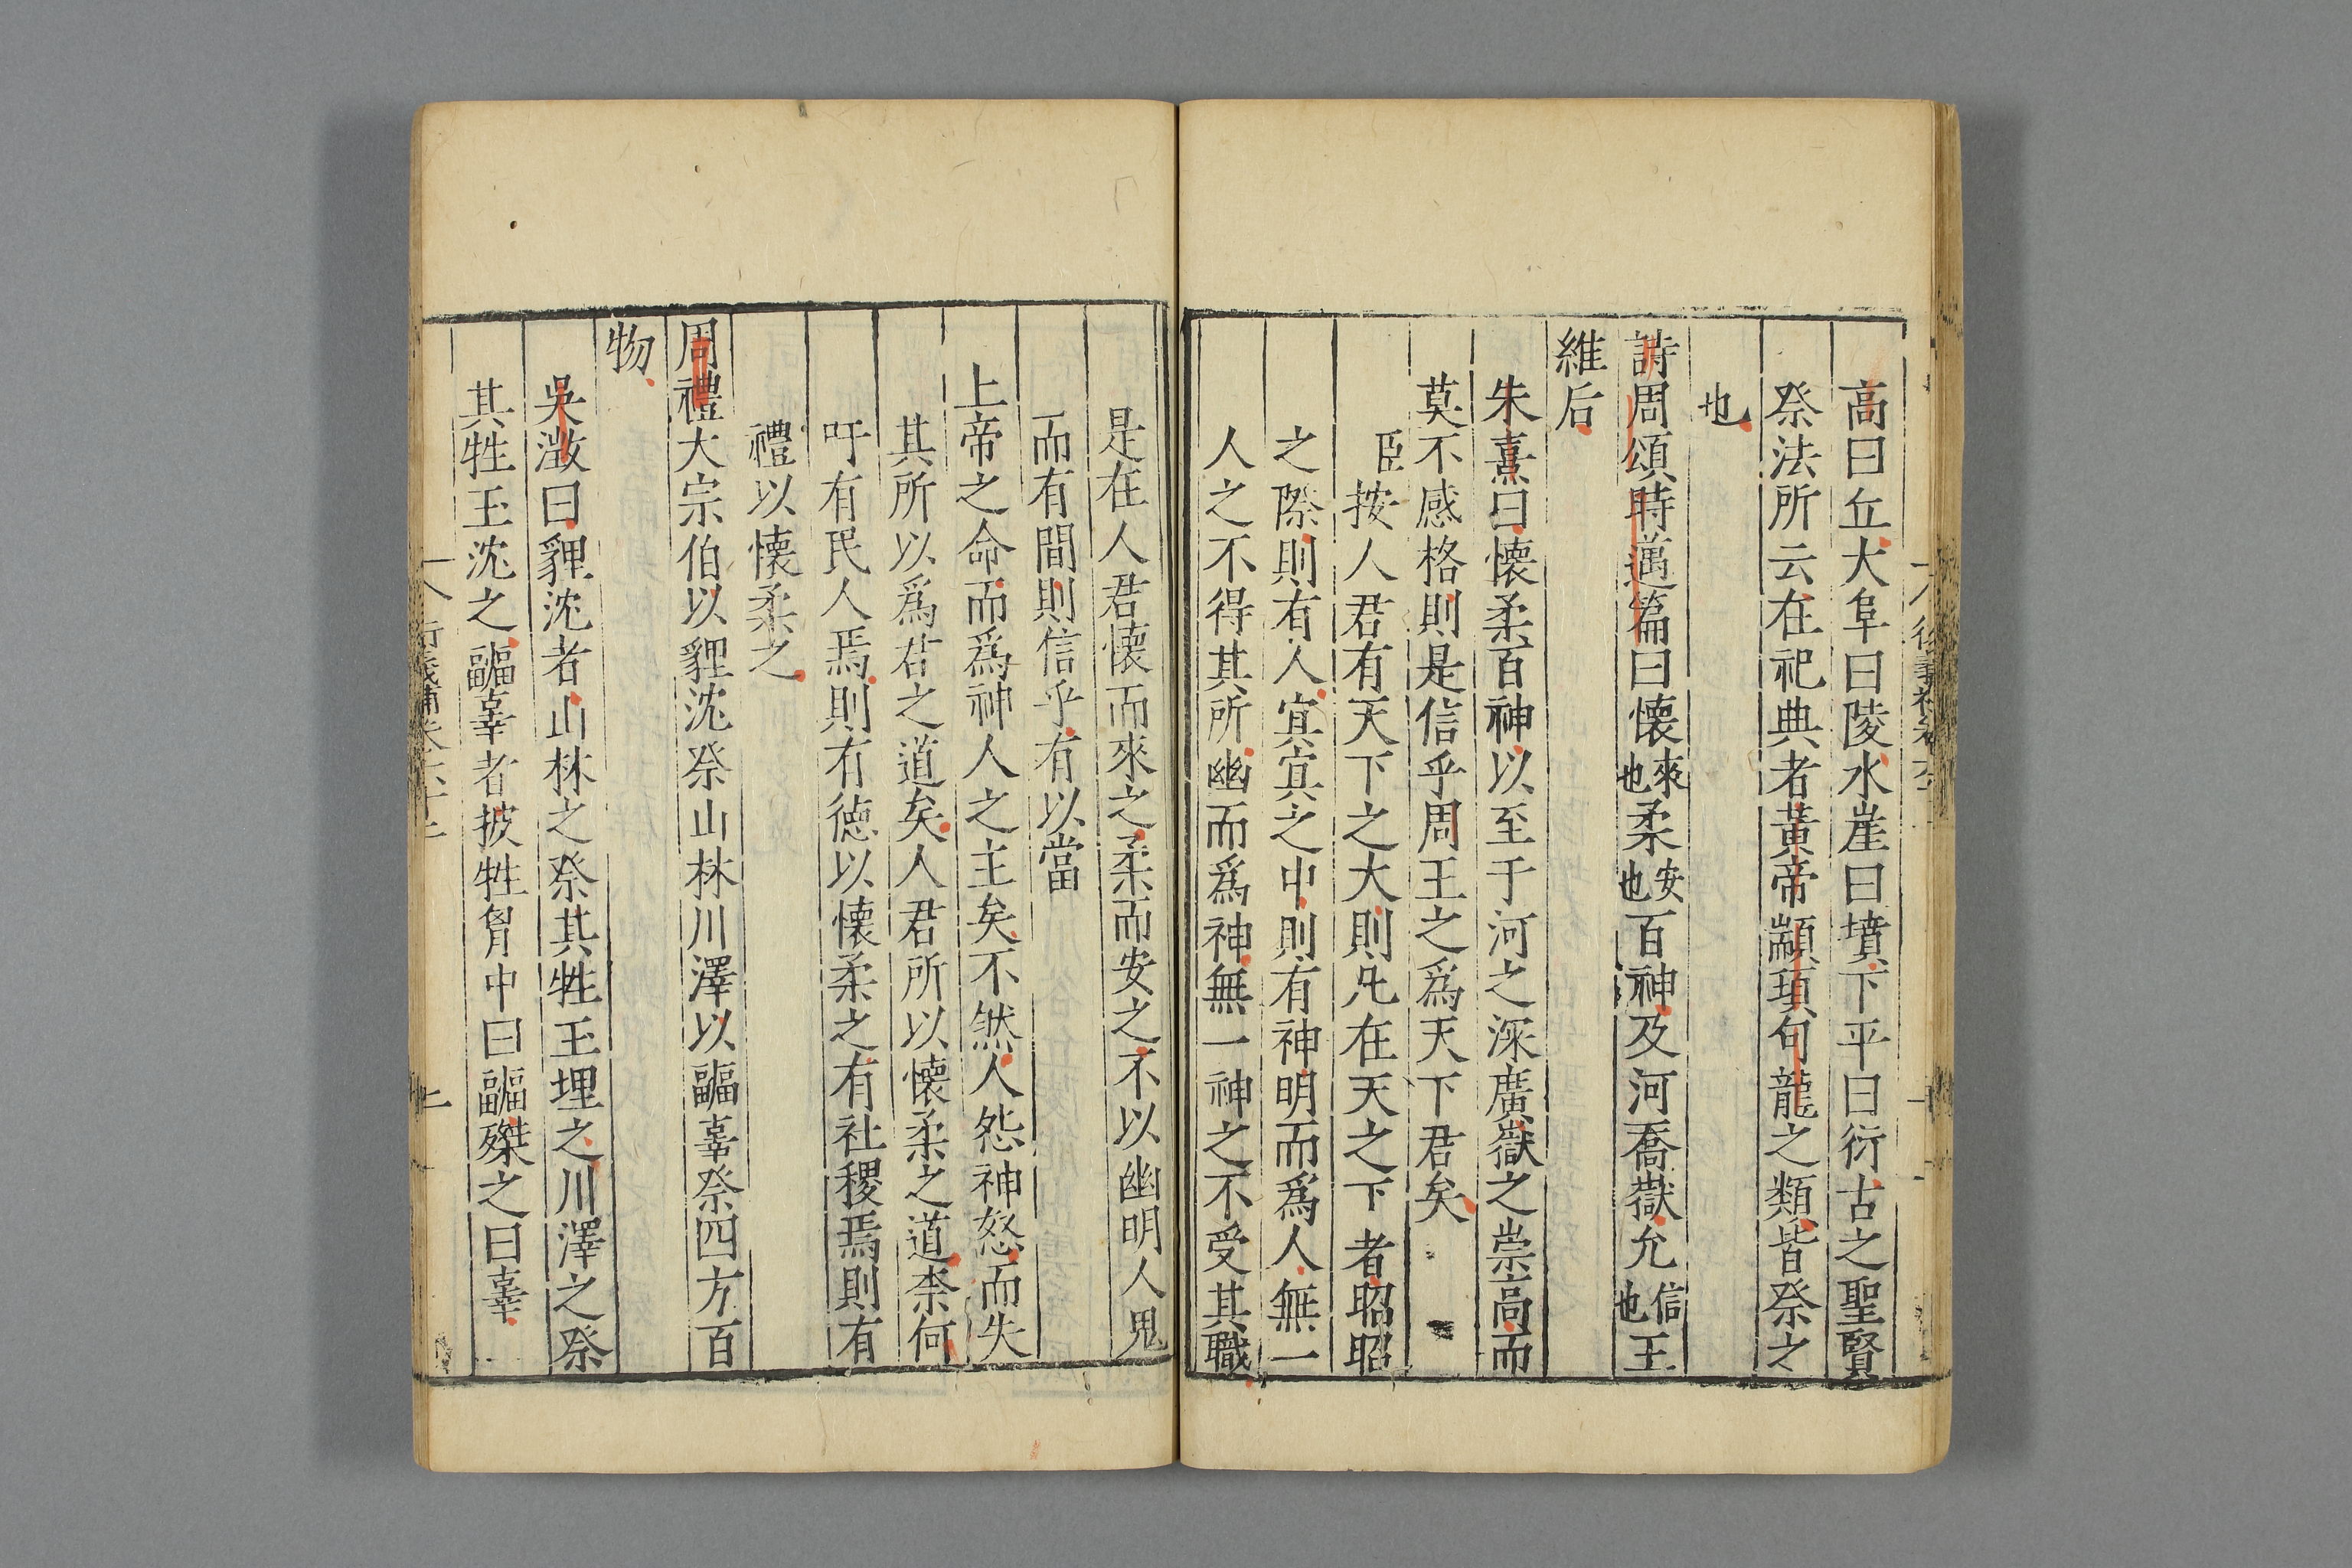 高曰丘大阜曰陵水崖曰墳下平曰衍古之聖賢
祭法所云在祀典者黃帝顓頊句龍之類皆祭之
也
詩周頌時邁篇曰懷來也柔安也百神及河喬嶽允信也王
維后
朱熹曰懷柔百神以至于河之深廣嶽之崇高而
莫不感格則是信乎周王之爲天下君矣
臣按人君有天下之大則凡在天之下者昭昭
之際則有人冥冥之中則有神明而爲人無一
人之不得其所幽而爲神無一神之不受其職
是在人君懷而來之柔而安之不以幽明人鬼
而有間則信乎有以當
上帝之命而爲神人之主矣不然人怨神怒而失
其所以爲君之道矣人君所以懷柔之道柰何
吁有民人焉則有德以懷柔之有社稷焉則有
禮以懷柔之
周禮大宗伯以貍沈祭山林川澤以疈辜祭四方百
物
吳澂曰貍沈者山林之祭其牲玉埋之川澤之祭
其牲玉沈之疈辜者披牲胷中曰疈磔之曰辜